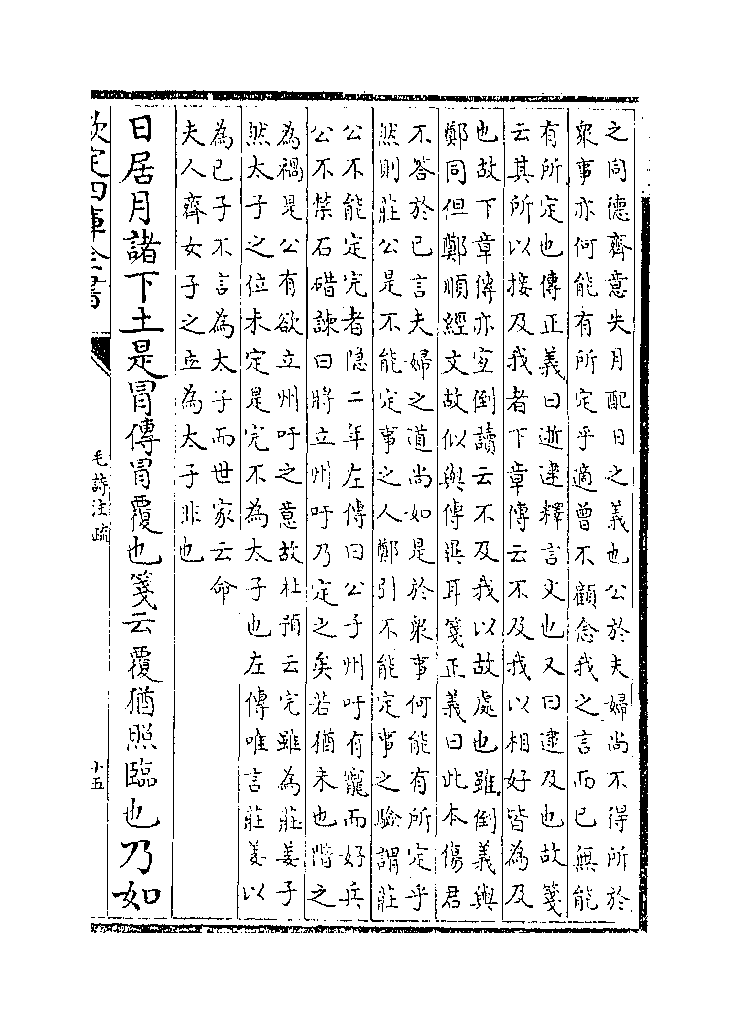 之同德齊意失月配日之義也公於夫婦尚不得所於
衆事亦何能有所定乎適曾不顧念我之言而已無能
有所定也傳正義曰逝逮釋言文也又曰逮及也故箋
云其所以接及我者下章傳云不及我以相好皆為及
也故下章傳亦宜倒讀云不及我以故處也雖倒義與
鄭同但鄭順經文故似與傳異耳箋正義曰此本傷君
不答於已言夫婦之道尚如是於衆事何能有所定乎
然則莊公是不能定事之人鄭引不能定事之驗謂莊
公不能定完者隱二年左傳曰公子州吁有寵而好兵
公不禁石碏諫曰將立州吁乃定之矣若猶未也階之
為禍是公有欲立州吁之意故杜預云完雖為莊姜子
然太子之位未定是完不為太子也左傳唯言莊姜以
為已子不言為太子而世家云命
夫人齊女子之立為太子非也
日居月諸下土是冒傳冒覆也箋云覆猶照臨也乃如
欽定四庫全書
毛詩注疏
十五